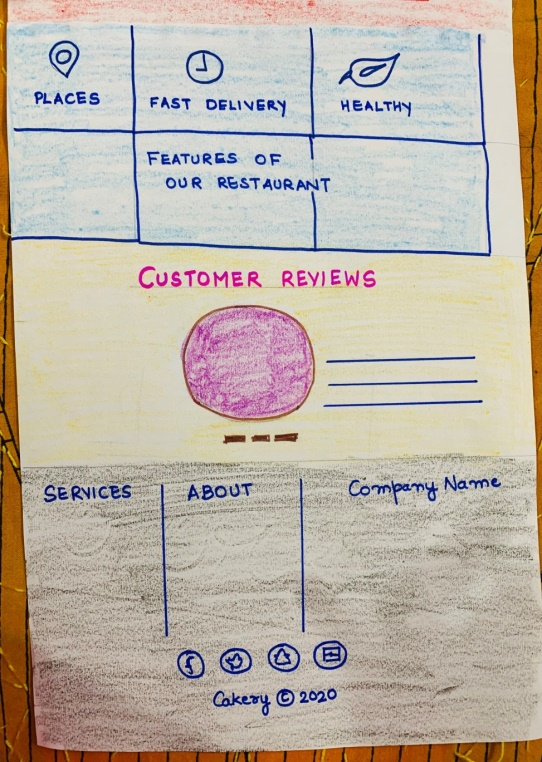 PLACES
FAST DELIVERY
HEALTHY
FEATURES OF
OUR RESTAURANT
CUSTOMER REVIEWS
SERVICES
ABOUT
Company Name
Cakery © 2020